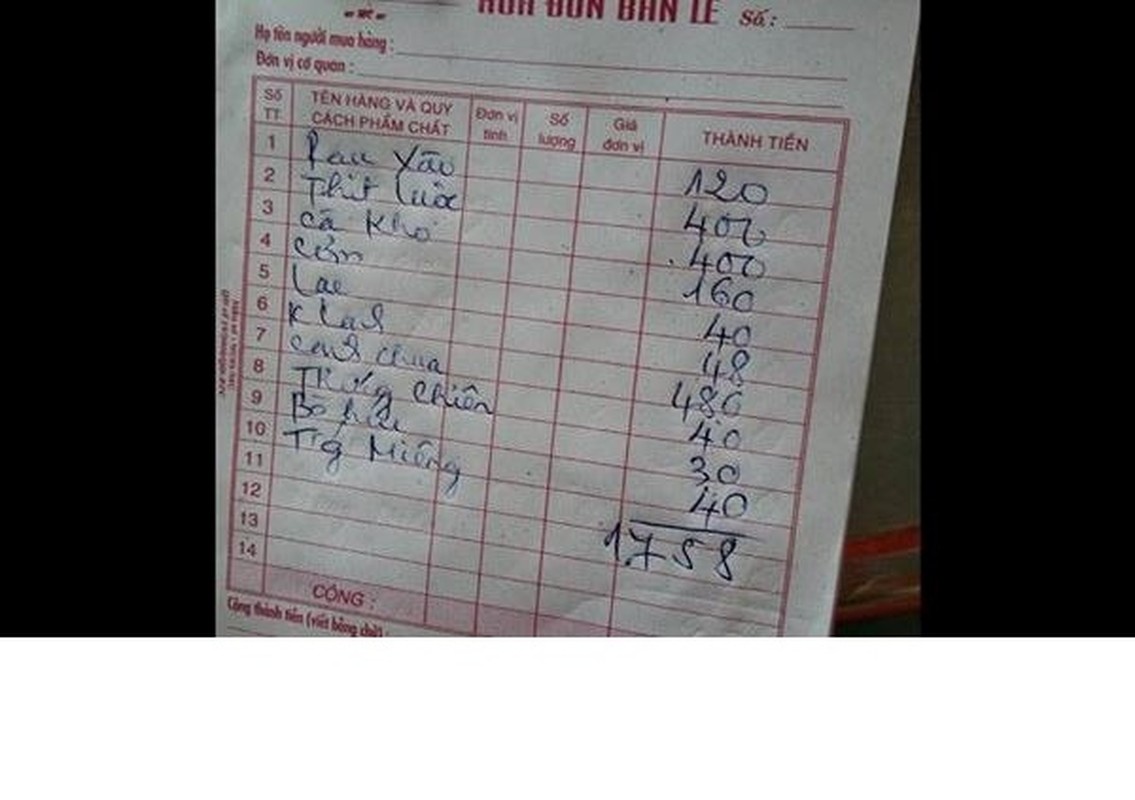 HÓA ĐƠN BÁN LẺ Số:
Họ tên người mua hàng:
Đơn vị cơ quan:
Số TT TÊN HÀNG VÀ QUY CÁCH PHẨM CHẤT Đơn vị tính Số lượng Giá đơn vị THÀNH TIỀN
1 Rau Xào 120
2 Thịt luộc 400
3 Cá Kho 400
4 Cơm 160
5 Lac 40
6 K lạnh 48
7 Canh chua 480
8 Trứng chiên 40
9 Bò húc 30
10 Tr'g Miếng 40
11 1.758
12
13
14
CỘNG:
Cộng thành tiền (viết bằng chữ):